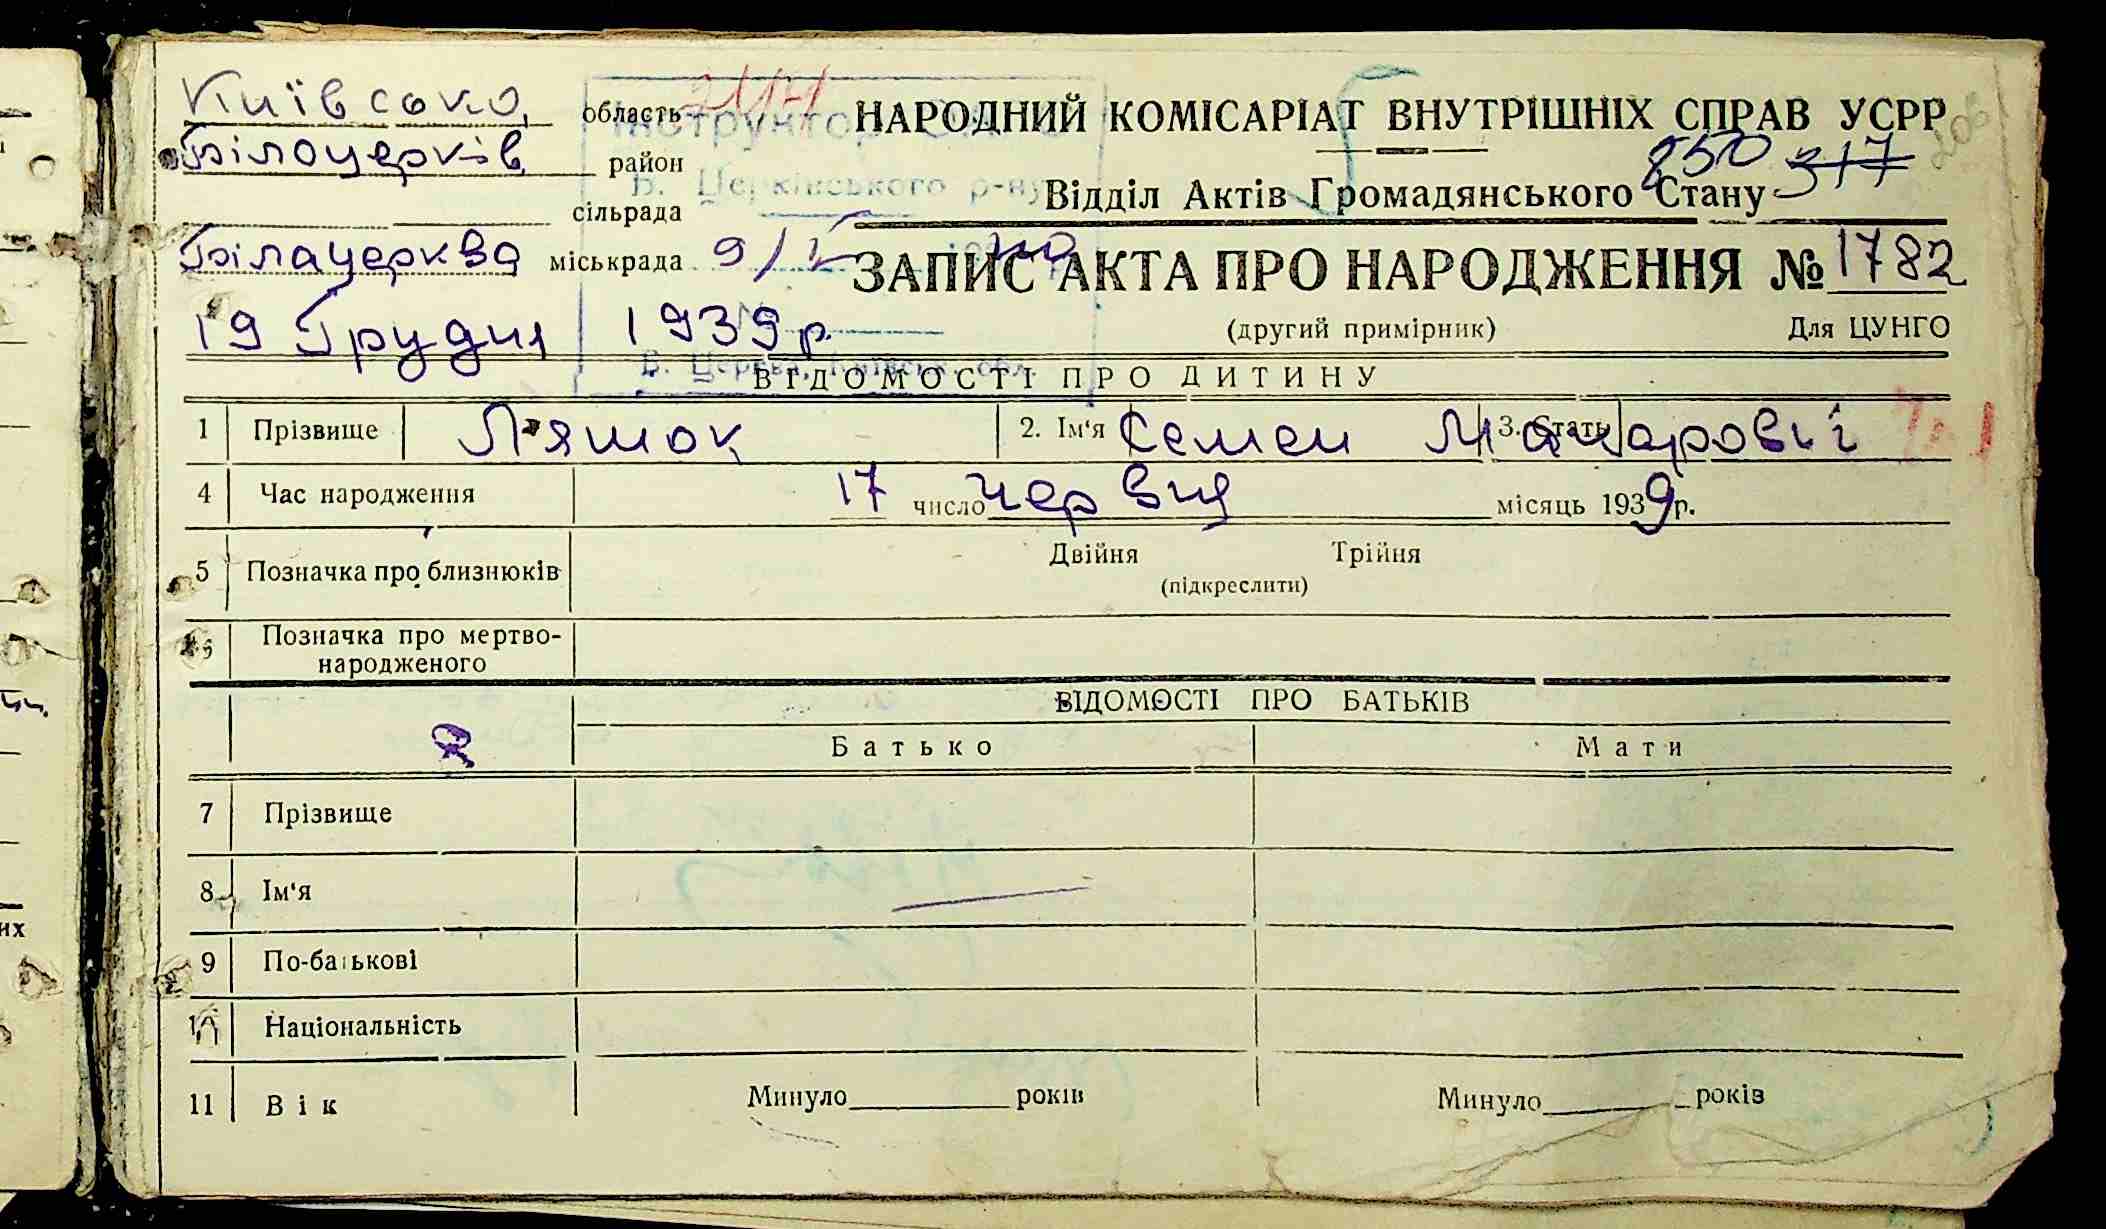 Київсько область НАРОДНИЙ КОМІСАРІАТ ВНУТРІШНІХ СПРАВ УСРР
Білоцерків район
850 317
Б. Церківського р-ну
Відділ Актів Громадянського Стану
сільрада
Білацерква міськрада 9/І
ЗАПИС АКТА ПРО НАРОДЖЕННЯ № 1782
19 Грудня 1939 р.
(другий примірник) Для ЦУНГО
Б. Церква, Київськ. обл.
ВІДОМОСТІ ПРО ДИТИНУ
1 Прізвище Ляшок 2. Ім'я Семен 3. Стать
4 Час народження 17 число червня місяць 1939 р.
5 Позначка про близнюків Двійня Трійня
(підкреслити)
6 Позначка про мертво-
народженого
ВІДОМОСТІ ПРО БАТЬКІВ
Батько Мати
7 Прізвище
8 Ім'я
9 По-батькові
10 Національність
11 Вік Минуло років Минуло років
их